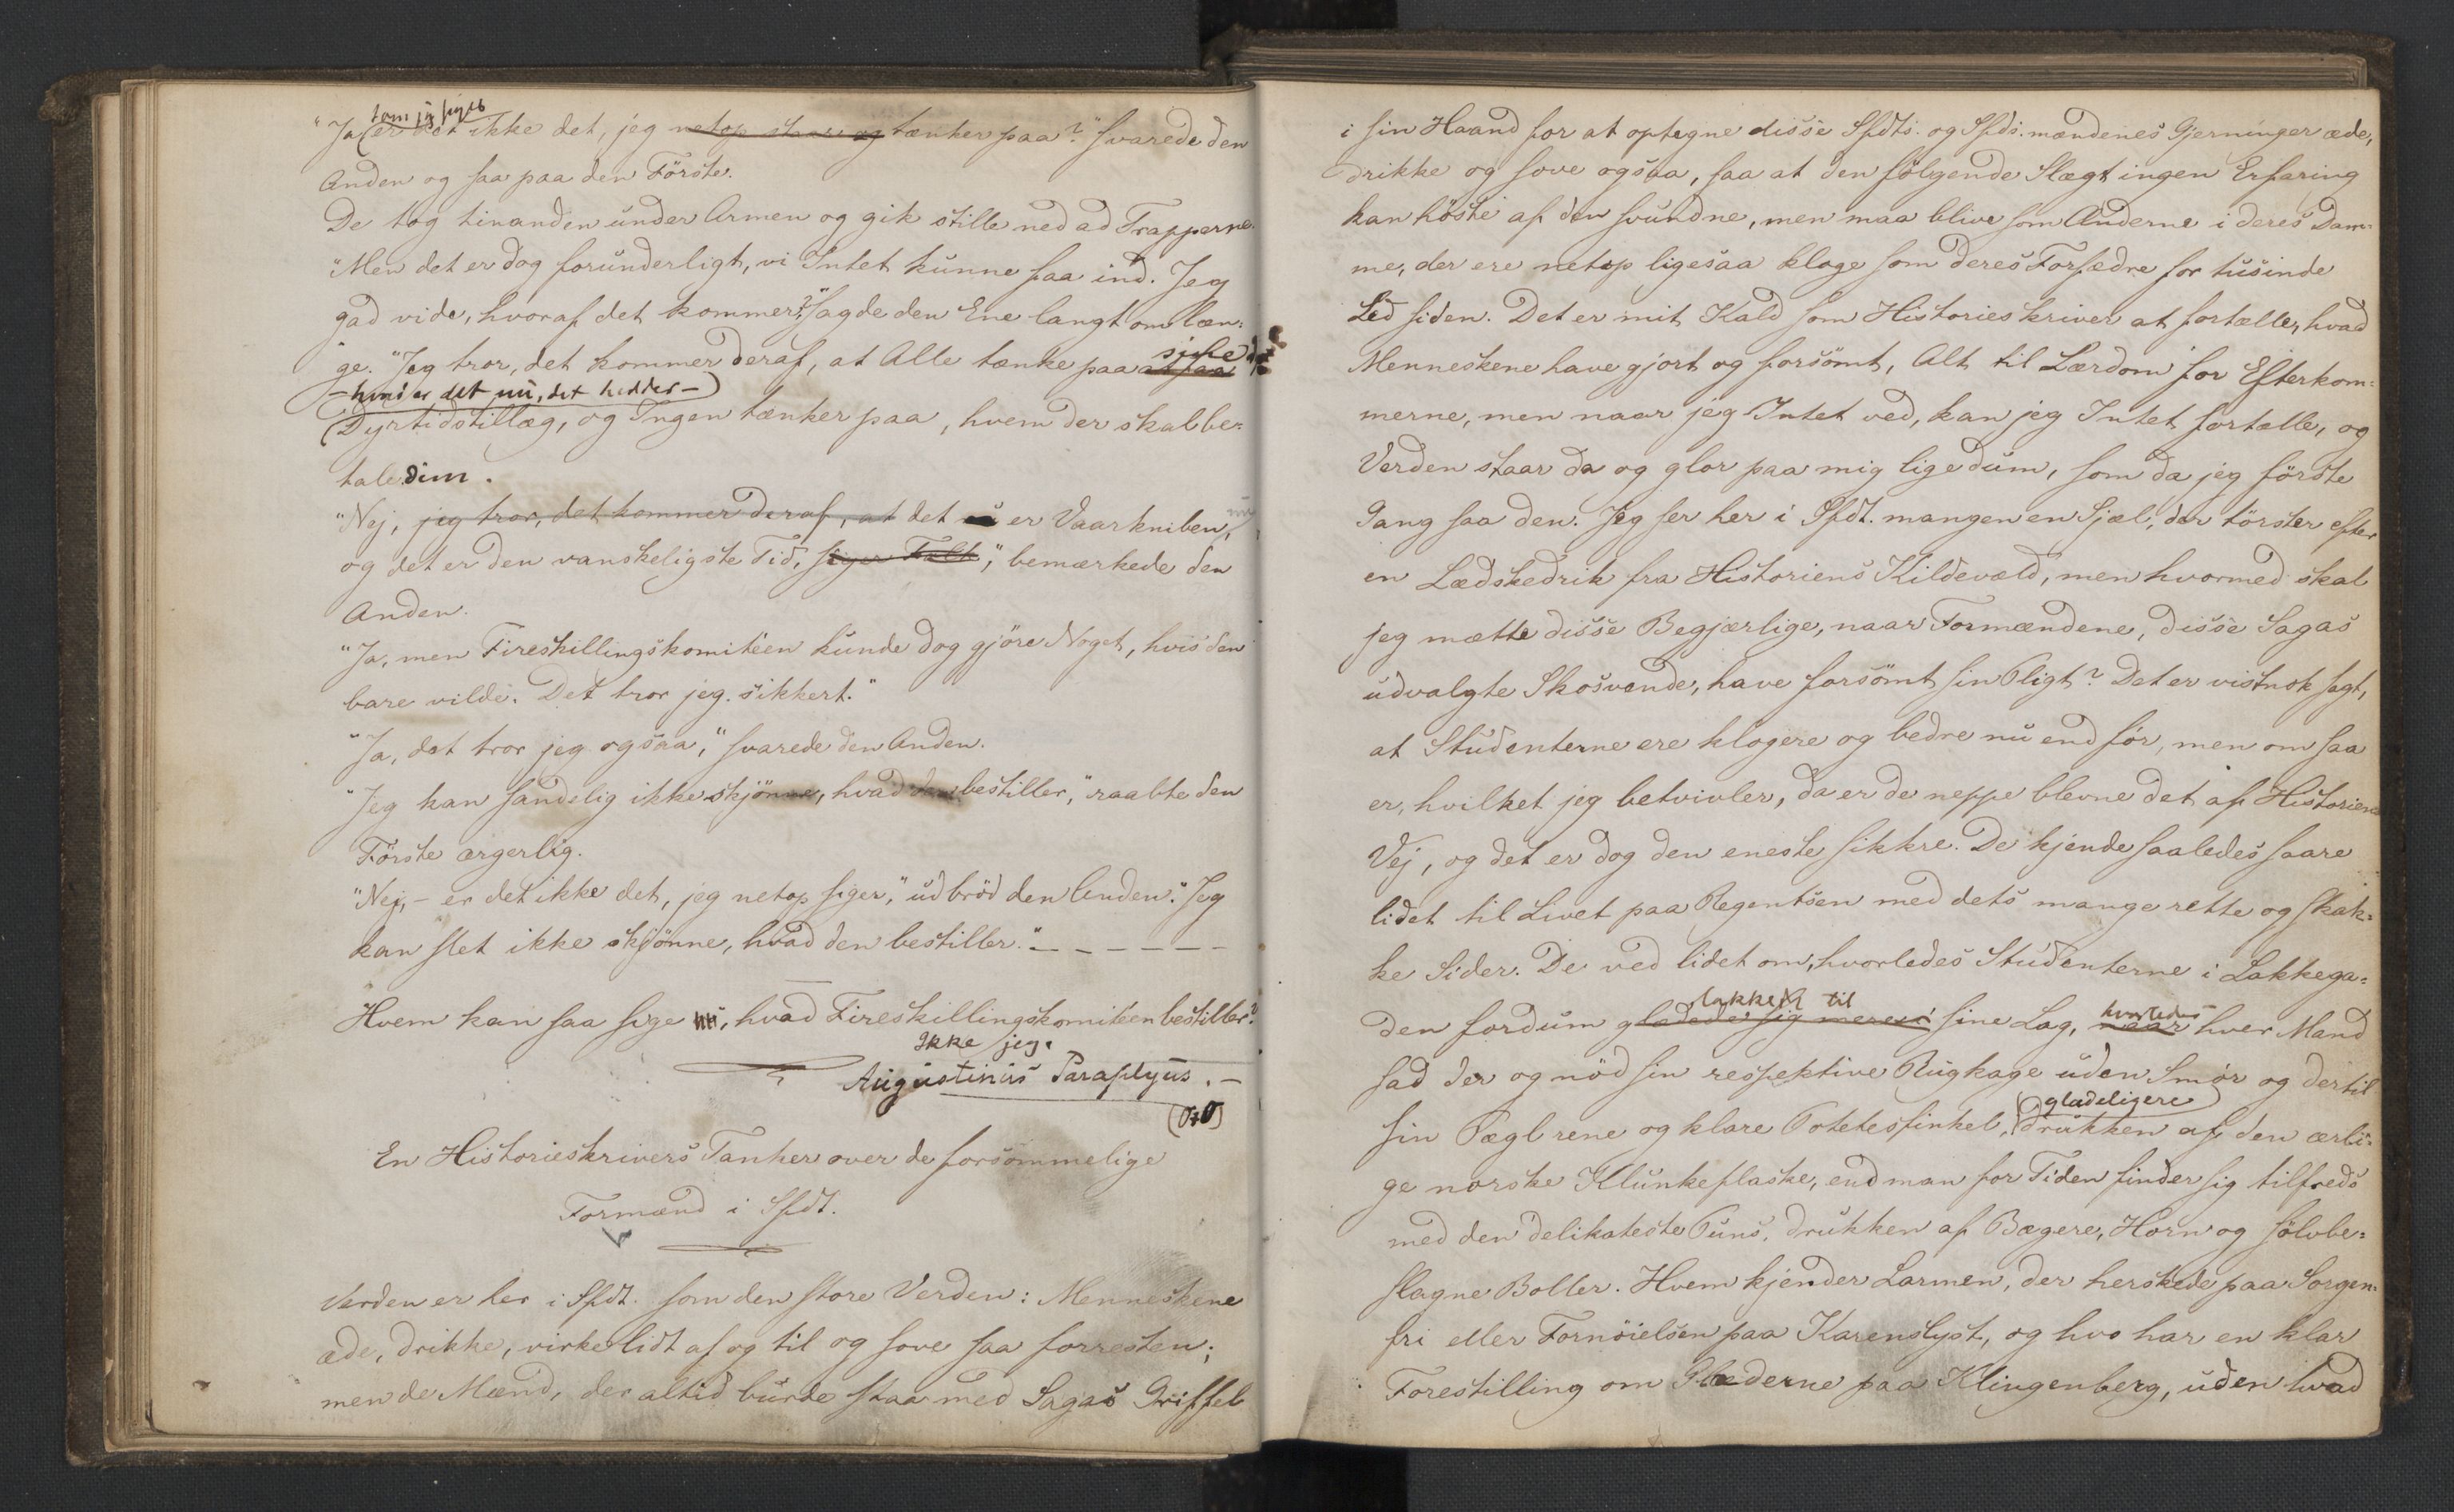 som jeg siger
"Ja (er det ikke det, jeg netop staar og tænker paa?" svarede den
Anden og saa paa den Förste.
De tog hinanden under Armen og gik stille ned ad Trapperne.
"Men det er dog forunderligt, vi Intet kunne faa ind. Jeg
gad vide, hvoraf det kommer?" sagde den Ene langt om læn:
ge. "Jeg tror, det kommer deraf, at Alle tænke paa at faa
- hvad er det nu, det hedder -
Dyrtidstillæg, og Ingen tænker paa, hvem der skal be:
tale dim.
"Nej, jeg tror, det kommer deraf, at det er Vaarkniben,
og det er den vanskeligste Tid, siger Folk," bemærkede den
Anden.
"Ja, men Fireskillingskomitéen kunde dog gjöre Noget, hvis den
bare vilde. Det tror jeg sikkert."
"Ja, det tror jeg ogsaa," svarede den Anden.
"Jeg kan sandelig ikke skjönne, hvad den bestiller," raabte den
Förste ærgerlig.
"Nej, - er det ikke det, jeg netop siger," udbröd den Anden. "Jeg
kan slet ikke skjönne, hvad den bestiller." - - - - - -
Hvem kan saa sige, hvad Fireskillingskomitéen bestiller?
Ikke jeg.
Augustinus Paraplyus. -
En Historieskrivers Tanker over de forsömmelige
Formænd i Sfdt.
Verden er her i Sfdt. som den store Verden: Menneskene
æde, drikke, virke lidt af og til og sove saa forresten;
men de Mænd, der altid burde staa med Sagas Griffel
i sin Haand for at optegne disse Sfdts. og Sfds. mændenes Gjerninger æde,
drikke og sove ogsaa, saa at den fölgende Slægt ingen Erfaring
kan höste af den svundne, men maa blive som Anderne i deres Dam:
me, der ere netop ligesaa kloge som deres Forfædre for tusinde
Led siden. Det er mit Kald som Historieskriver at fortælle, hvad
Menneskene have gjort og forsömt, Alt til Lærdom for Efterkom:
merne, men naar jeg Intet ved, kan jeg Intet fortælle, og
Verden staar da og glor paa mig lige dum, som da jeg förste
Gang saa den. Jeg ser her i Sfdt. mangen en Sjæl, der törster efter
en Lædskedrik fra Historiens Kildevæld, men hvormed skal
jeg mætte disse Begjærlige, naar Formændene, disse Sagas
udvalgte Skosvende, have forsömt sin Pligt? Det er vistnok sagt,
at Studenterne ere klogere og bedre nu end för, men om saa
er, hvilket jeg betvivler, da er de neppe blevne det af Historiens
Vej, og det er dog den eneste sikkre. De kjende saaledes saare
lidet til Livet paa Regentsen med dets mange rette og skak:
ke Sider. De ved lidet om, hvorledes Studenterne i Lakkega:
lakked til hvorledes
den fordum glædede sig mere i sine Lag, naar hver Mand
sad der og nöd sin respektive Rugkage uden Smör og dertil
gladeligere
sin Pægl rene og klare Potetesfinkel, drukken af den ærli:
ge norske Klunkeflaske, end man for Tiden finder sig tilfreds
med den delikateste Puns, drukken af Bægere, Horn og sölvbe:
slagne Boller. Hvem kjender Larmen, der herskede paa Sorgen:
fri eller Fornöielsen paa Karenslyst, og hvo har en klar
Forestilling om Glæderne paa Klingenberg, uden hvad